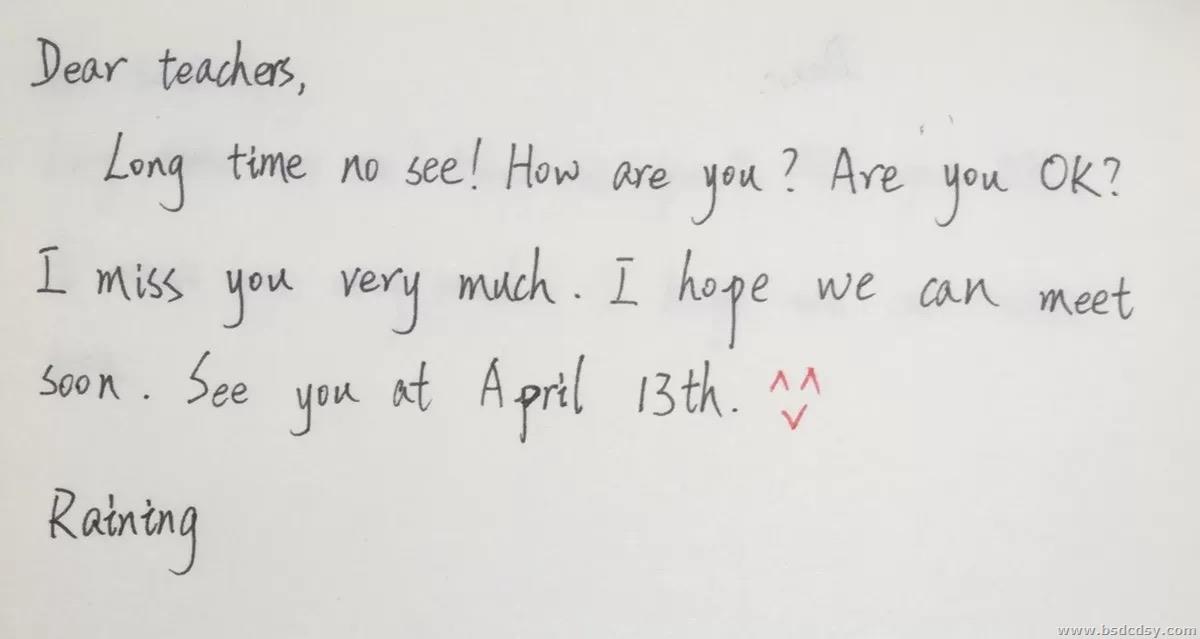 Dear teachers,
Long time no see! How are you? Are you OK?
I miss you very much. I hope we can meet
soon. See you at April 13th. ^ ^
v
Raining
www.bsdcdsy.com